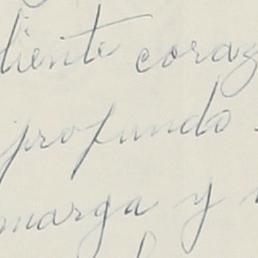 diente coraz
profundo
marga y